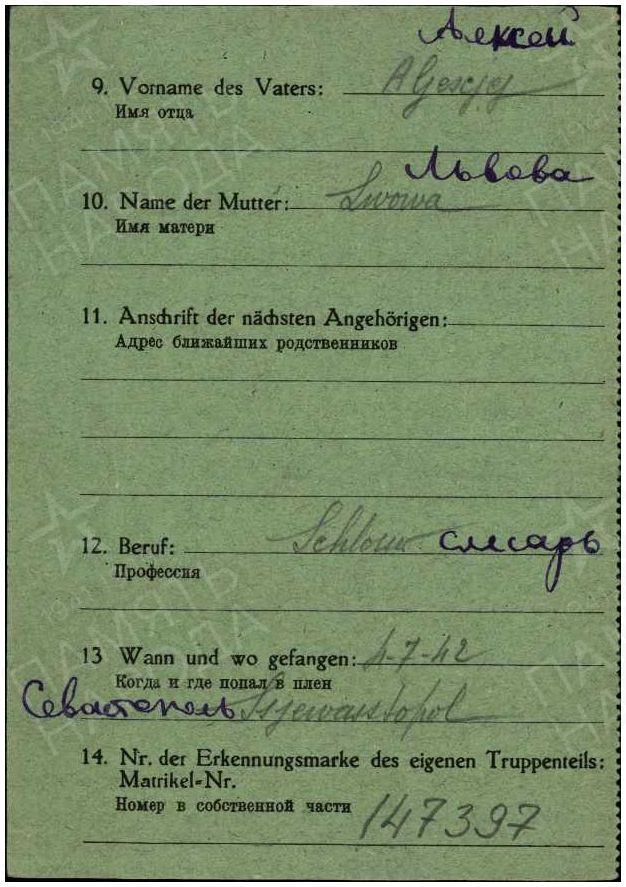 Алексей
9. Vorname des Vaters: Aljexjej
Имя отца
Львова
10. Name der Mutter: Lwowa
Имя матери
11. Anschrift der nächsten Angehörigen:
Адрес ближайших родственников
12. Beruf: слесарь
Профессия
13 Wann und wo gefangen: 4-7-42
Когда и где попал в плен
Севастополь Ssjewasstopol
14. Nr. der Erkennungsmarke des eigenen Truppenteils:
Matrikel-Nr.
Номер в собственной части 147397
ПАМЯТЬ
НАРОДА